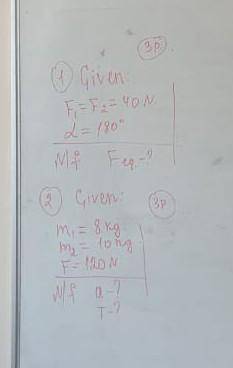 3p.
① Given:
F₁ = F₂ = 40 N.
α = 180°
N/f Feq. - ?
② Given: 3p.
m₁ = 8 kg
m₂ = 10 kg
F = 120 N
N/f a - ?
T - ?